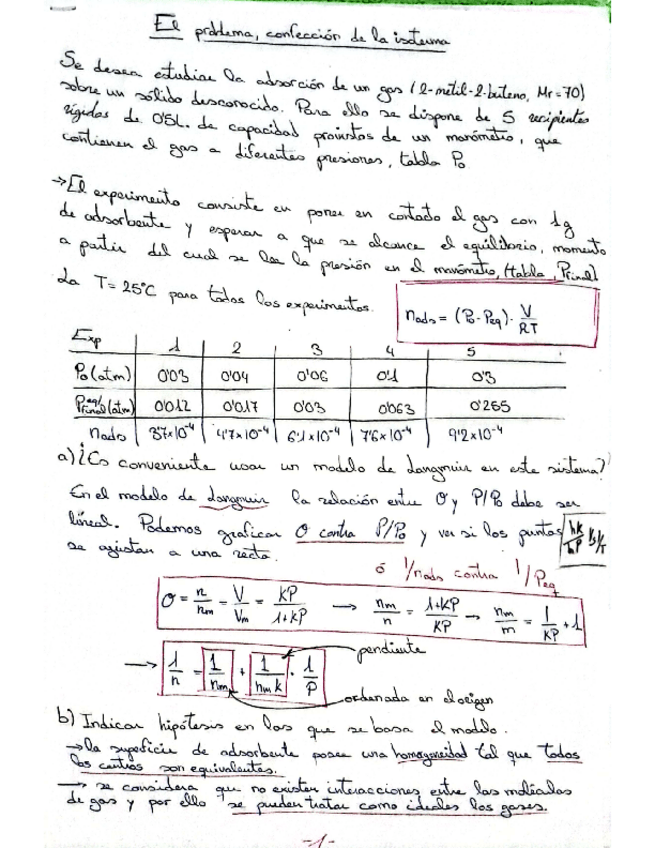 El problema, confección de la isoterma
Se desea estudiar la adsorción de un gas (2-metil-2-buteno, Mr=70)
sobre un sólido desconocido. Para ello se dispone de 5 recipientes
rígidos de 0'5L. de capacidad provistos de un manómetro, que
contienen el gas a diferentes presiones, tabla Po
→ El experimento consiste en poner en contacto el gas con 1g
de adsorbente y esperar a que se alcance el equilibrio, momento
a partir del cual se lee la presión en el manómetro, (tabla, Pfinal)
La T= 25°C para todos los experimentos.
nads = (Po - Peq) · V/RT
Exp 1 2 3 4 5
Po (atm) 0'03 0'04 0'06 0'1 0'3
Peq/Pfinal (atm) 0'012 0'017 0'03 0'063 0'255
nads 3'7×10⁻⁴ 4'7×10⁻⁴ 6'1×10⁻⁴ 7'6×10⁻⁴ 9'2×10⁻⁴
a) ¿Es conveniente usar un modelo de Langmuir en este sistema?
En el modelo de Langmuir la relación entre θ y P/Po debe ser
lineal. Podemos graficar θ contra P/Po y ver si los puntos
se ajustan a una recta.
ó 1/nads contra 1/Peq
θ = n/nm = V/Vm = KP/1+KP → nm/n = 1+KP/KP → nm/m = 1/KP + 1
→ 1/n = 1/nm + 1/nm k · 1/P
pendiente
ordenada en el origen
b) Indicar hipótesis en las que se basa el modelo.
→ la superficie de adsorbente posee una homogeneidad tal que todos
los centros son equivalentes.
→ se considera que no existen interacciones entre las moléculas
de gas y por ello se pueden tratar como ideales los gases.
-1-